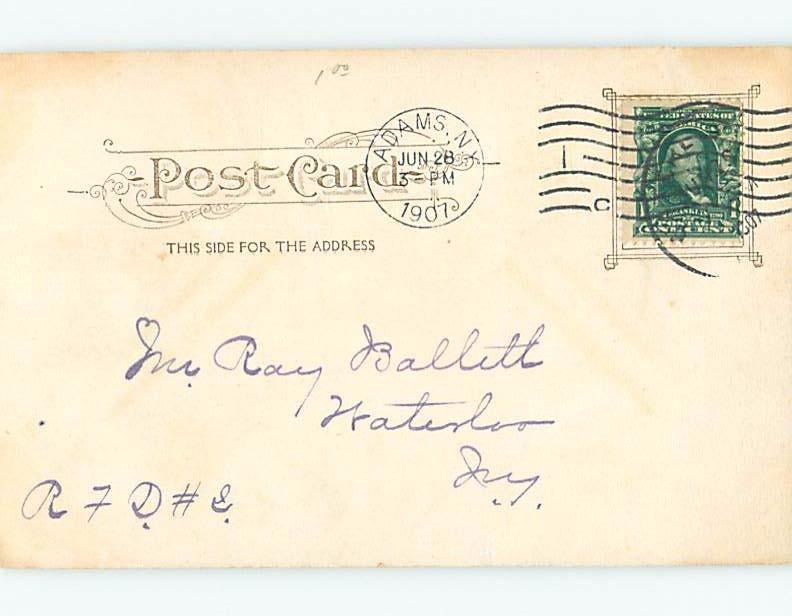 1 00
Post Card
ADAMS, N.Y.
JUN 28
3 - PM
1907
C
UNITED STATES OF
AMERICA
FRANKLIN
POSTAGE
ONE CENT
THIS SIDE FOR THE ADDRESS
Mr. Ray Ballett
Waterloo
N.Y.
R F D #